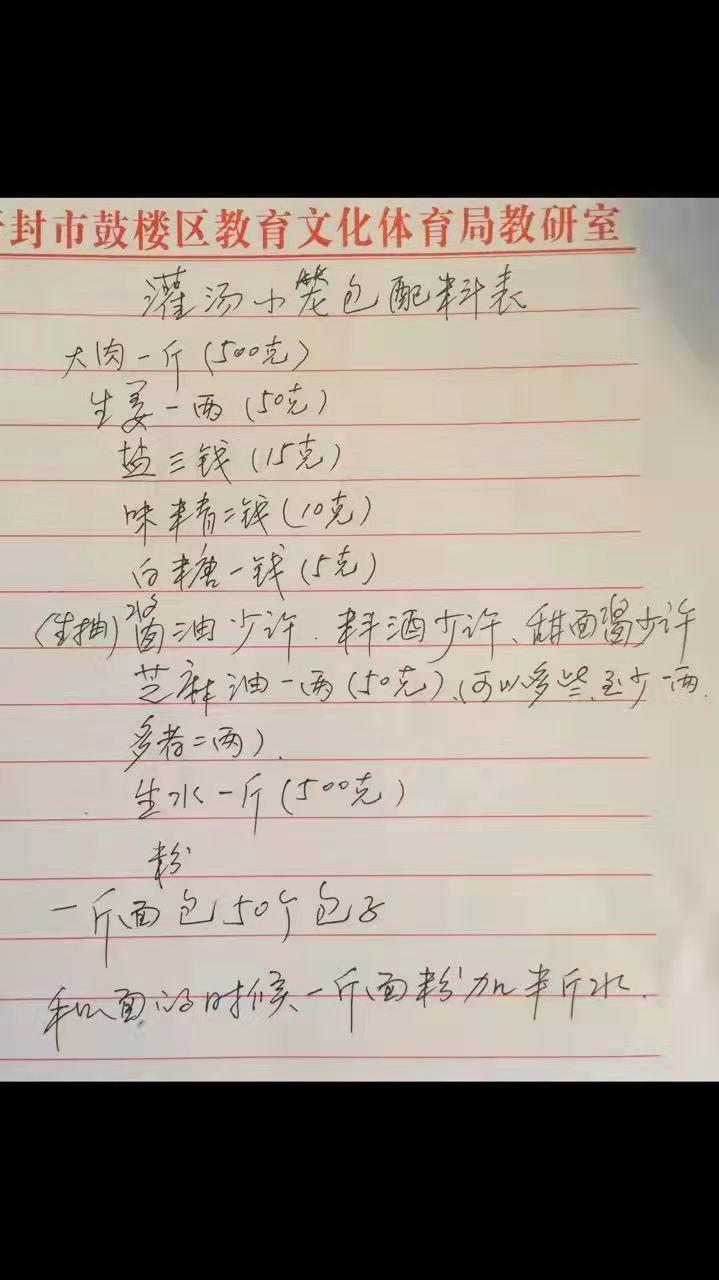 封市鼓楼区教育文化体育局教研室
灌汤小笼包配料表
大肉一斤(500克)
生姜一两(50克)
盐三钱(15克)
味精二钱(10克)
白糖一钱(5克)
(生抽)酱油少许.料酒少许、甜面酱少许
芝麻油一两(50克)、(可以多些,至少一两.
多者二两).
生水一斤(500克)
粉
一斤面包50个包子
和面的时候、一斤面粉加半斤水.